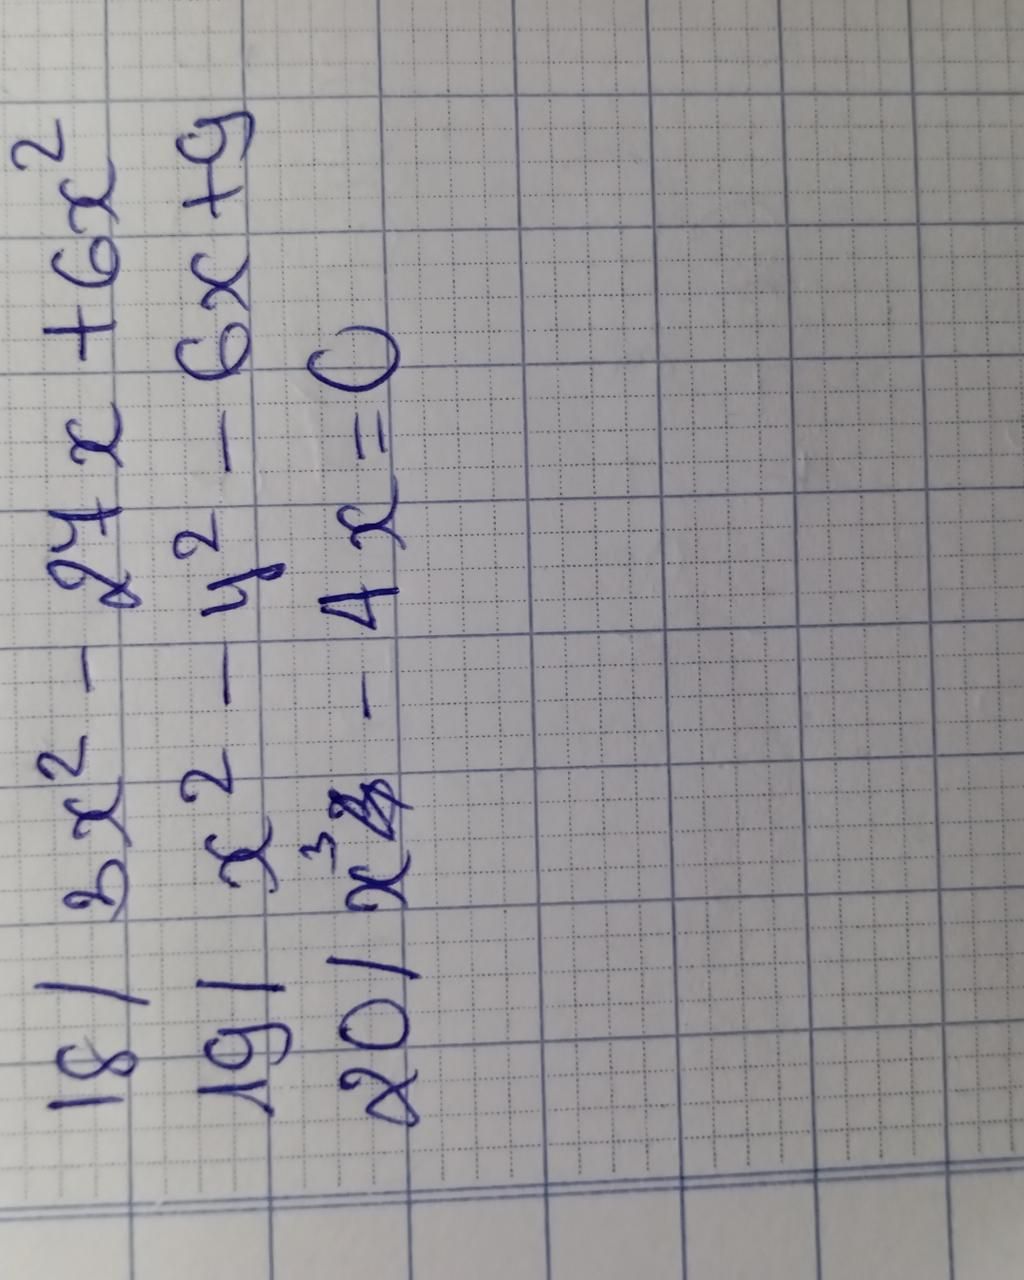 18/ 3x² - 24x + 6x²
19/ x² - y² - 6x + 9
20/ x³ - 4x = 0